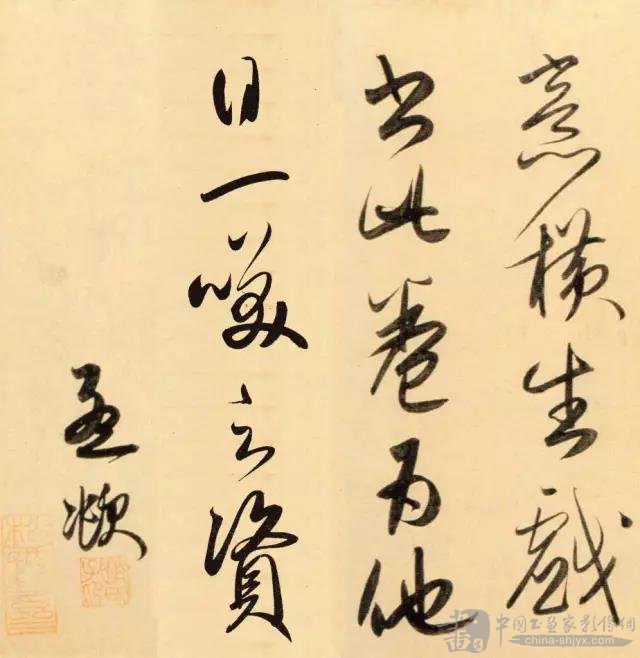 意横生戏
書此卷為他
日一笑之資
孟頫
中国书画家影像网
china-shjyx.com